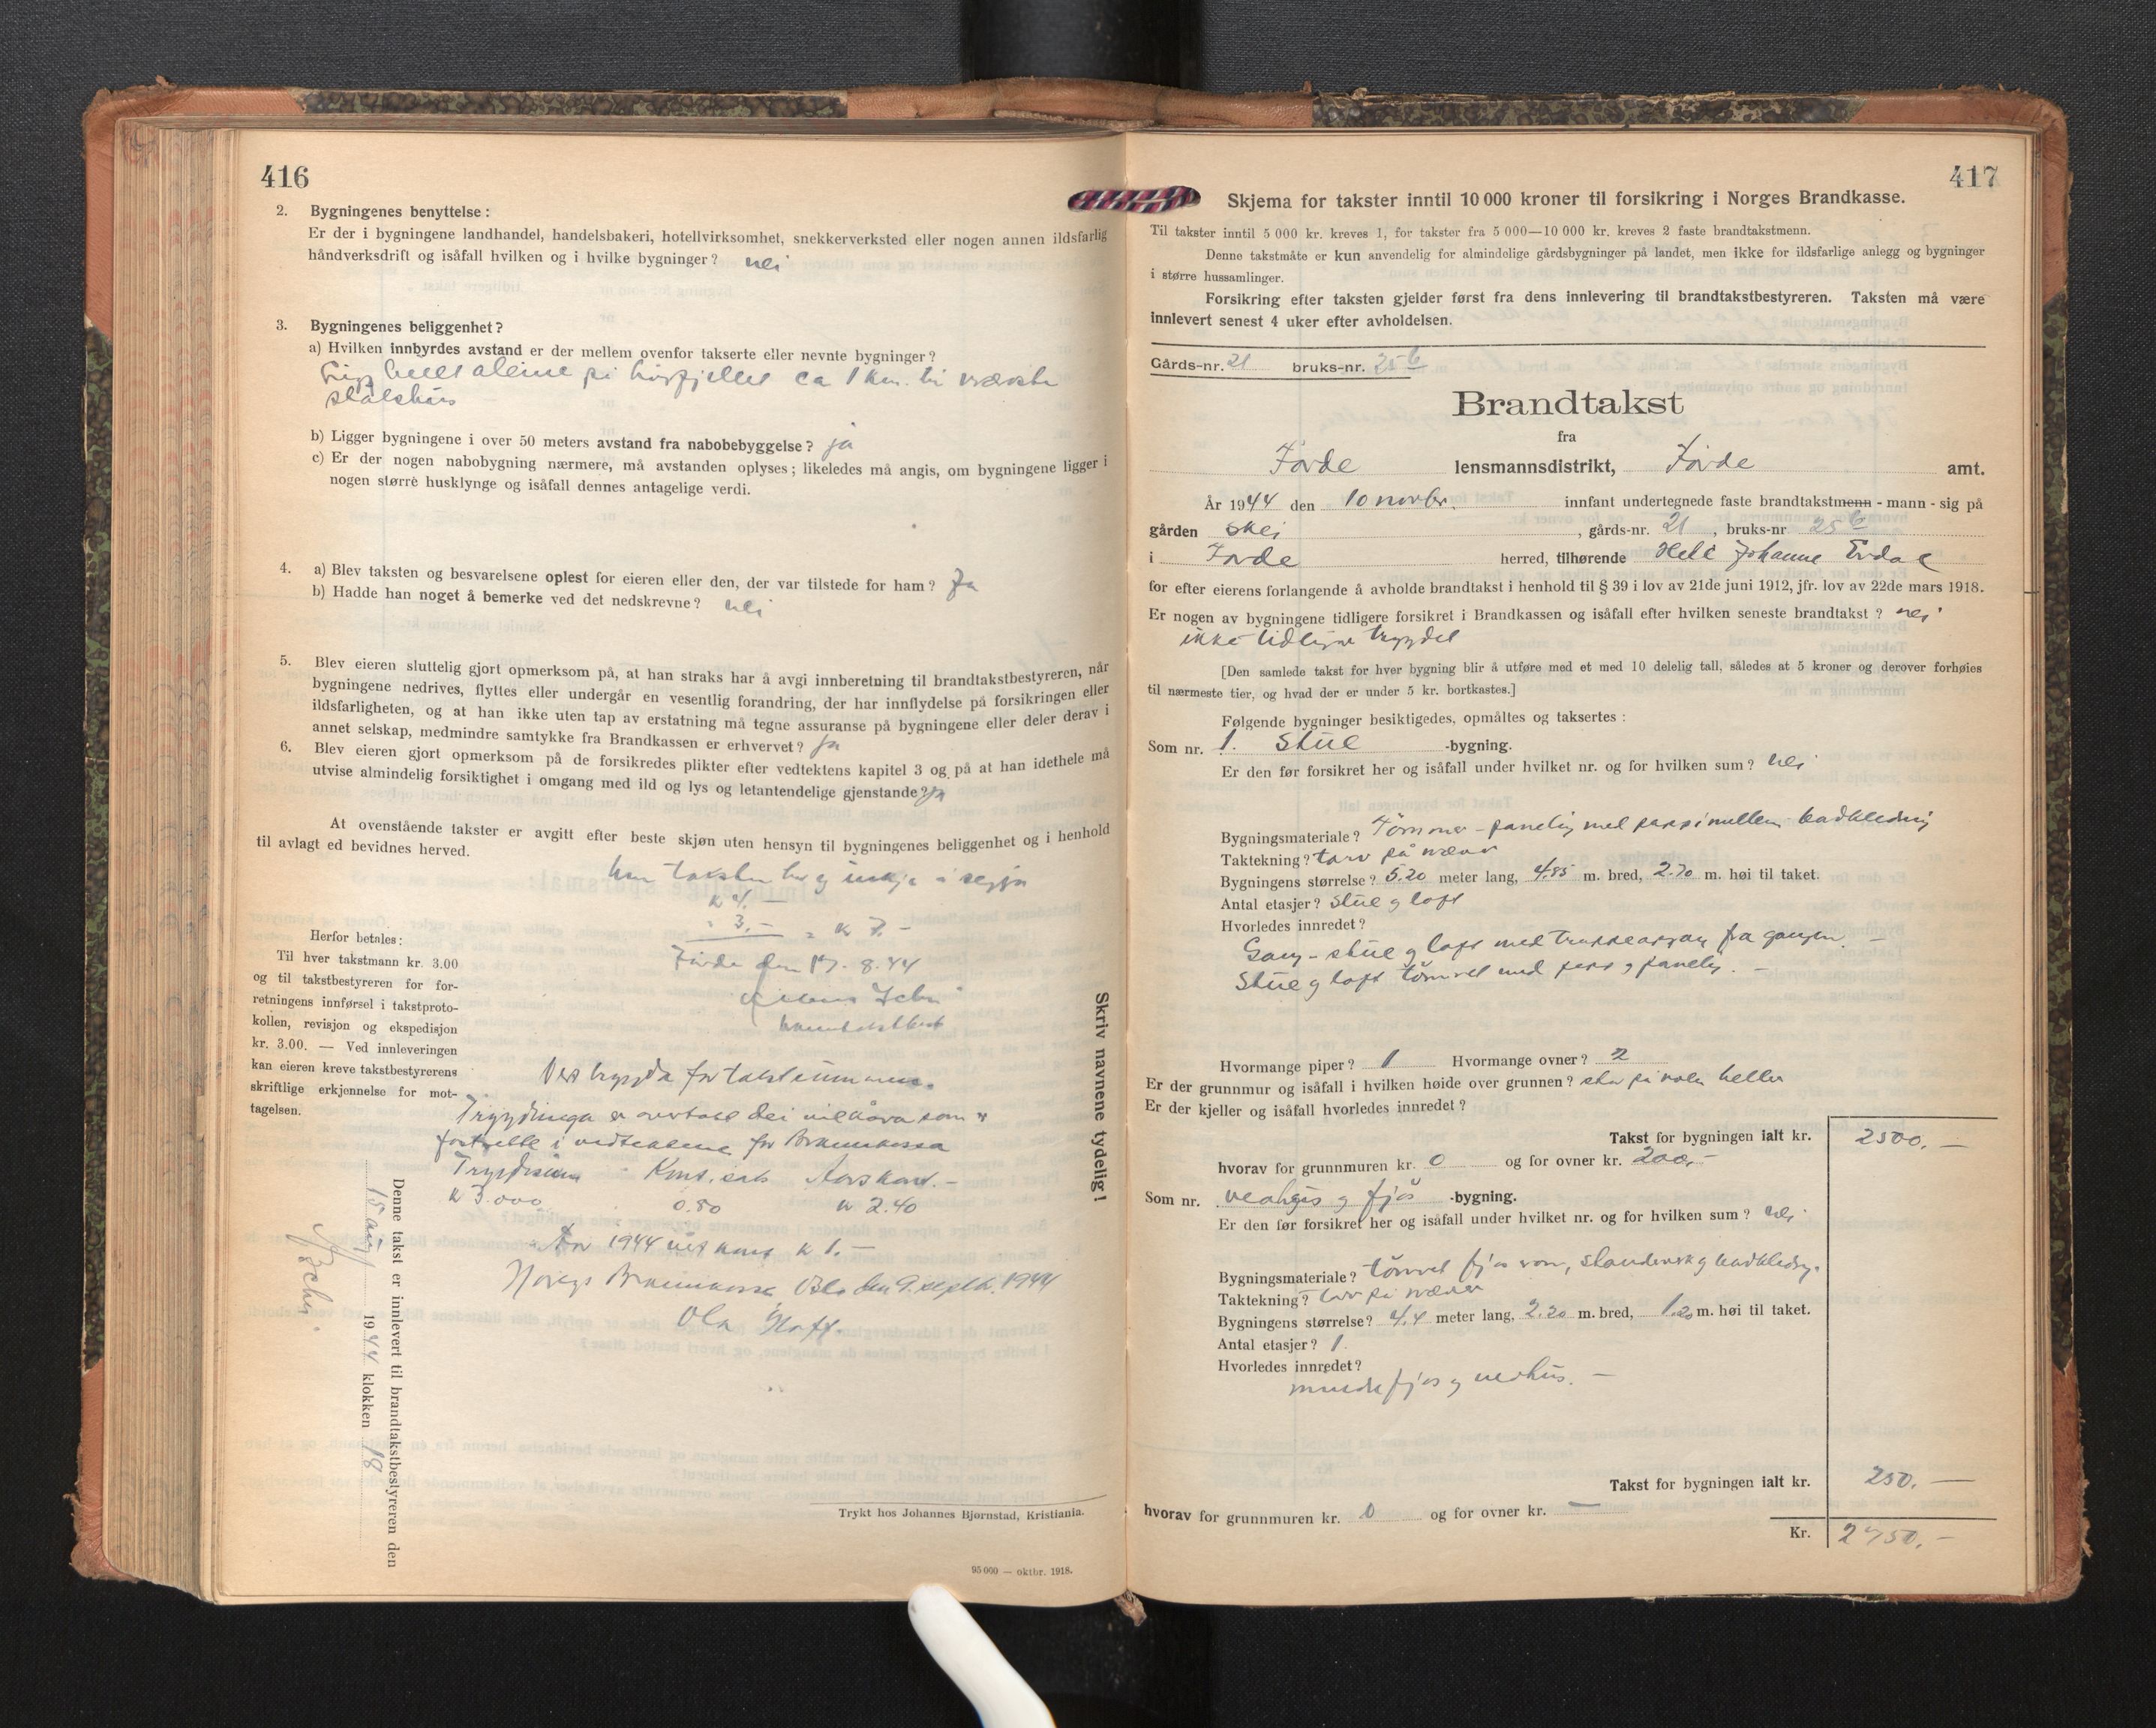 416
2. Bygningenes benyttelse:
Er der i bygningene landhandel, handelsbakeri, hotellvirksomhet, snekkerverksted eller nogen annen ildsfarlig
håndverksdrift og isåfall hvilken og i hvilke bygninger? nei
3. Bygningenes beliggenhet?
a) Hvilken innbyrdes avstand er der mellem ovenfor takserte eller nevnte bygninger?
heilt aleine på høgfjellet ca 1 km. til næraste
stølshus
b) Ligger bygningene i over 50 meters avstand fra nabobebyggelse? ja
c) Er der nogen nabobygning nærmere, må avstanden oplyses; likeledes må angis, om bygningene ligger i
nogen større husklynge og isåfall dennes antagelige verdi.
4. a) Blev taksten og besvarelsene oplest for eieren eller den, der var tilstede for ham? Ja
b) Hadde han noget å bemerke ved det nedskrevne? nei
5. Blev eieren sluttelig gjort opmerksom på, at han straks har å avgi innberetning til brandtakstbestyreren, når
bygningene nedrives, flyttes eller undergår en vesentlig forandring, der har innflydelse på forsikringen eller
ildsfarligheten, og at han ikke uten tap av erstatning må tegne assuranse på bygningene eller deler derav i
annet selskap, medmindre samtykke fra Brandkassen er erhvervet? ja
6. Blev eieren gjort opmerksom på de forsikredes plikter efter vedtektens kapitel 3 og på at han idethele må
utvise almindelig forsiktighet i omgang med ild og lys og letantendelige gjenstande? ja
At ovenstående takster er avgitt efter beste skjøn uten hensyn til bygningenes beliggenhet og i henhold
til avlagt ed bevidnes herved.
taksten her eg inkje å segja
k 4.—
" 3.— = kr 7.—
Førde den 17. 8. 44
Herfor betales:
Til hver takstmann kr. 3.00
og til takstbestyreren for for-
retningens innførsel i takstproto-
kollen, revisjon og ekspedisjon
kr. 3.00. — Ved innleveringen
kan eieren kreve takstbestyrerens
skriftlige erkjennelse for mot-
tagelsen.
Vert trygda for takstsummen.
Trygdinga er avertall dei vilkåra som er
fastsette i vedtektene for Brannkassa
Trygdesum Kont. sats Aarskont.—
kr 3.000 0.80 kr 2.40
Aar 1944 vert kont kr 1.—
Noregs Brannkassa Oslo den 9. septbr. 1944
Ola
Skriv navnene tydelig!
Denne takst er innlevert til brandtakstbestyreren den
15 aug 1944 klokken 18
Trykt hos Johannes Bjørnstad, Kristiania.
95 000 — oktbr. 1918.
417
Skjema for takster inntil 10 000 kroner til forsikring i Norges Brandkasse.
Til takster inntil 5 000 kr. kreves 1, for takster fra 5 000—10 000 kr. kreves 2 faste brandtakstmenn.
Denne takstmåte er kun anvendelig for almindelige gårdsbygninger på landet, men ikke for ildsfarlige anlegg og bygninger
i større hussamlinger.
Forsikring efter taksten gjelder først fra dens innlevering til brandtakstbestyreren. Taksten må være
innlevert senest 4 uker efter avholdelsen.
Gårds-nr. 21 bruks-nr. 25 b
Brandtakst
fra
Førde lensmannsdistrikt, Førde amt.
År 1944 den 10 novbr. innfant undertegnede faste brandtakstmenn - mann - sig på
gården Skei, gårds-nr. 21, bruks-nr 25 b
i Førde herred, tilhørende Johanne Erdal
for efter eierens forlangende å avholde brandtakst i henhold til § 39 i lov av 21de juni 1912, jfr. lov av 22de mars 1918.
Er nogen av bygningene tidligere forsikret i Brandkassen og isåfall efter hvilken seneste brandtakst? nei
ikke tidligere trygdet
[Den samlede takst for hver bygning blir å utføre med et med 10 delelig tall, således at 5 kroner og derover forhøies
til nærmeste tier, og hvad der er under 5 kr. bortkastes.]
Følgende bygninger besiktigedes, opmåltes og taksertes:
Som nr. 1. Stue -bygning.
Er den før forsikret her og isåfall under hvilket nr. og for hvilken sum? nei
Bygningsmateriale? Tømmer - paneling med papp imellem bordkledning
Taktekning? torv på never
Bygningens størrelse? 5.20 meter lang, 4.85 m. bred, 2.70 m. høi til taket.
Antal etasjer? Stue og loft
Hvorledes innredet?
Gang - stue og loft med trappeopgang fra gangen. —
Stue og loft tømret med papp og paneling. —
Hvormange piper? 1 Hvormange ovner? 2
Er der grunnmur og isåfall i hvilken høide over grunnen? står på heller
Er der kjeller og isåfall hvorledes innredet?
Takst for bygningen ialt kr. 2500.—
hvorav for grunnmuren kr. 0 og for ovner kr. 200,-
Som nr. vedhus og fjøs -bygning.
Er den før forsikret her og isåfall under hvilket nr. og for hvilken sum? nei
Bygningsmateriale? tømret fjøs rom, standerverk og bordkledng.
Taktekning? torv på never
Bygningens størrelse? 4.4 meter lang, 2.20 m. bred, 1.20 m. høi til taket.
Antal etasjer? 1
Hvorledes innredet?
fjøs og vedhus. —
Takst for bygningen ialt kr. 250.—
hvorav for grunnmuren kr. 0 og for ovner kr. —
Kr. 2750.-